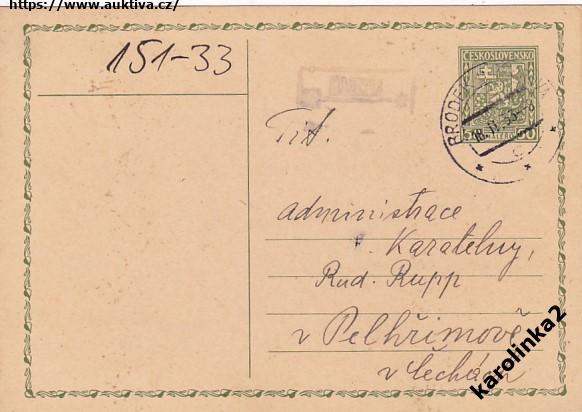 https://www.auktiva.cz/
151-33
ČESKOSLOVENSKO
50
BRODEK
18. II. 33
Tit.
administrace
Karatelny,
Rud. Rupp
v Pelhřimově
v Čechách
karolinka2